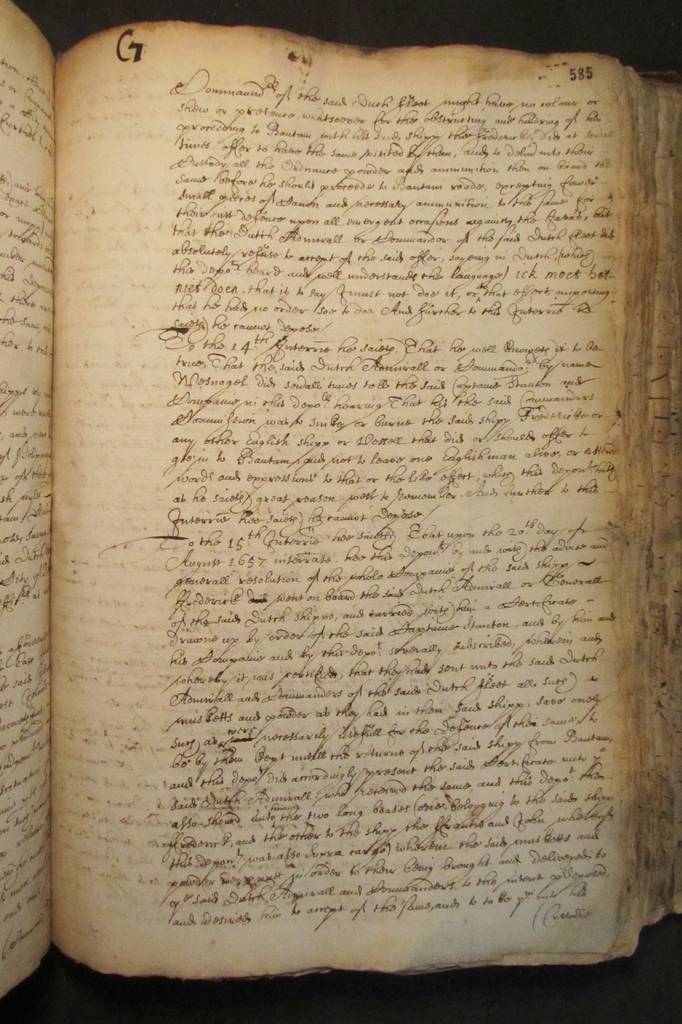 G7
585
Commaund:rs of the said Dutch fleet might have no colour or
shew or pretence whatsoever for the obstructing and hindring of his
proceeding to Bantam with the said shipp the Frederick, did at severall
times offer to have the same visited by them, and to deliver into their
Custody all the Ordnance powder and ammunition then on board the
same before he should proceede to Bantam roade, excepting fower
small pieces of Canon and necessary ammunition to the same for
their just defence upon all emergent occasions against the Javaes but
that the Dutch Admirall or Commander of the said Dutch fleet did
absolutely refuse to accept of the said offer, sayeing in Dutch (which
this depo:t heard and well understands the language) ick moet het
niet doen, that is to say I must not doe it, or to that effect, importing
that he had no order soe to doe And further to this Interrie he
saieth he cannot depose/
To the 14th Interrie he saieth, That he well knoweth it to be
true, That the said Dutch Admirall or Commande:r by name
Wesnagel did severall times tell the said Captaine Stanton and
Companie in this depo:ts hearing That his the said Commanders
Commission was to sinke or burne the said shipp Frederick or
any other English shipp or Vessell that did or should offer to
goe in to Bantam, and not to leave one Englishman alive, or
words and expressions to that or the like effect, which this depon:t hath
as he saieth great reason well to remember. And further to this
Interrie hee saieth he cannot Depose/
To the 15th Interrie hee saieth, That upon the 20:th day of
August 1657 interrate, hee this depon:t by and with the advice and
generall resolution of the whole Companie of the said shipp
Frederick went on board the said Dutch Admirall or Generall
of the said Dutch shipps, and carried with him a Certificate
drawne up by order of the said Captaine Stanton, and by him and
his Companie and by this depo:t severally subscribed, wherein and
whereby it was certified, that they had sent unto the said Dutch
Admirall and Commanders of the said Dutch fleet all such
musketts and powder as they had in their said shipp, save onely
such as were necessarily usefull for the defence of the same to
be by them kept untill the returne of the said shipp from Bantam,
and this depo:t did accordingly present the said Certificate unto ye
said Dutch Admirall, who received the same, and this depo:t then
also shewed unto the two long boates (one belonging to the said shipp
Frederick, and the other to the shipp the Francis and John whereof
this depon:t was also supra cargo) wherein the said musketts and
powder were put in order to their being brought and delivered to
ye said Dutch Admirall and Commanders to the intent predeposed
and desired him to accept of the same, and to be put into his
(Custodie